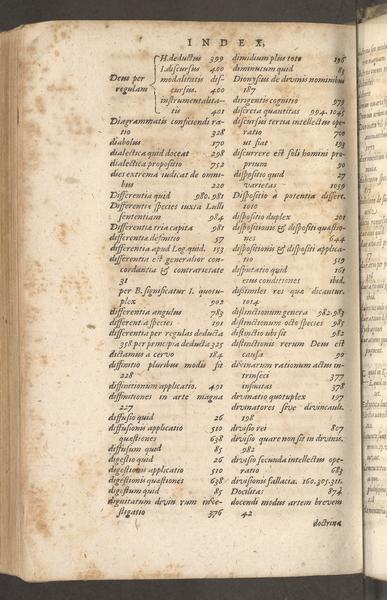 INDEX,
H. deductus 399
I. discursus 400
Deus per modalitatis dis-
regulam cursus. 400
instrumentalita-
tis 401
Diagrammatis conficiendi ra-
tio 328
diabolus 170
dialectica quid doceat 298
dialectica propositio 752
dies extrema iudicat de omni-
bus 220
Differentia quid 980.981
Differentiæ species iuxta Lulli
sententiam 984
Differentia tria capita 981
differentia definitio 57
differentia apud Log. quid. 153
differentia est generalior con-
cordantia & contrarietate
31
per B. significatur 1. quotu-
plex 902
differentia angulus 783
differentia species 191
differentia per regulas deducta
358. per principia deducta 325
dictamus a cervo 184
diffinitio pluribus modis sit
228
diffinitionum applicatio. 491
diffinitiones in arte magna
227
diffusio quid 26
diffusionis applicatio 510
quæstiones 638
diffusum quid 85
digestio quid 26
digestionis applicatio 510
digestionis quæstiones 638
digestum quid 85
dignitatum divin. rum inve-
stigatio 376
dimidium plus toto 196
diminutum quid 85
Dionysius de divinis nominibus
187
dirigentis cognitio 979
discreta quantitas 994.1045
discursus tertia intellectus ope-
ratio 700
ut fiat 193
discurrere est soli homini pro-
prium 90
dispositio quid 27
varietas 1039
Dispositio a potentia differt.
1010
dispositio duplex 201
dispositionis & dispositi quæstio-
nes 644
dispositionis & dispositi applica-
tio 519
disputatio quid 161
eius conditiones ibid.
dissimiles res quæ dicantur.
1014
distinctionum genera 982.983
distinctionum octo species 985
distinctio ubi sit 982
distinctionis rerum Deus est
causa 90
divinarum rationum actus in-
trinseci 377
infinitas 378
divinatio quotuplex 197
divinatores sive divinaculi.
198
divisio rei 807
divisio quare non sit in divinis.
982
divisio secunda intellectus ope-
ratio 683
divisionis fallacia. 160.305.311.
Docilitas 874
docendi modus artem brevem
42
doctrina